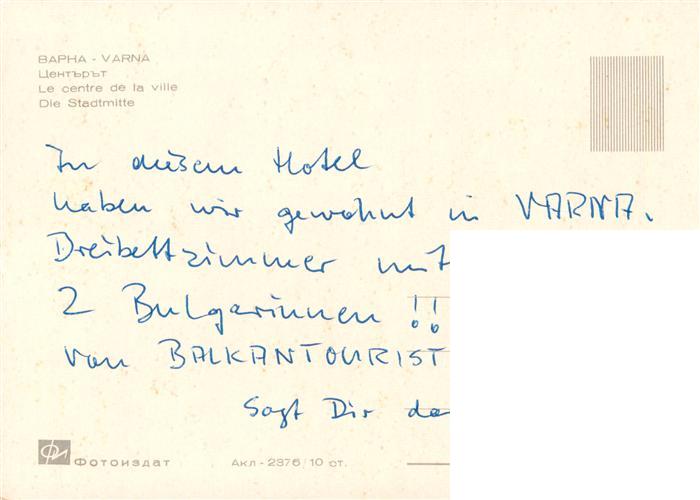 ВАРНА - VARNA
Центърът
Le centre de la ville
Die Stadtmitte
In diesem Hotel
haben wir gewohnt in VARNA.
Dreibettzimmer mit
2 Bulgarinnen !!
von BALKANTOURIST
Sagt Dir da
Фотоиздат
Акл - 2376/10 ст.